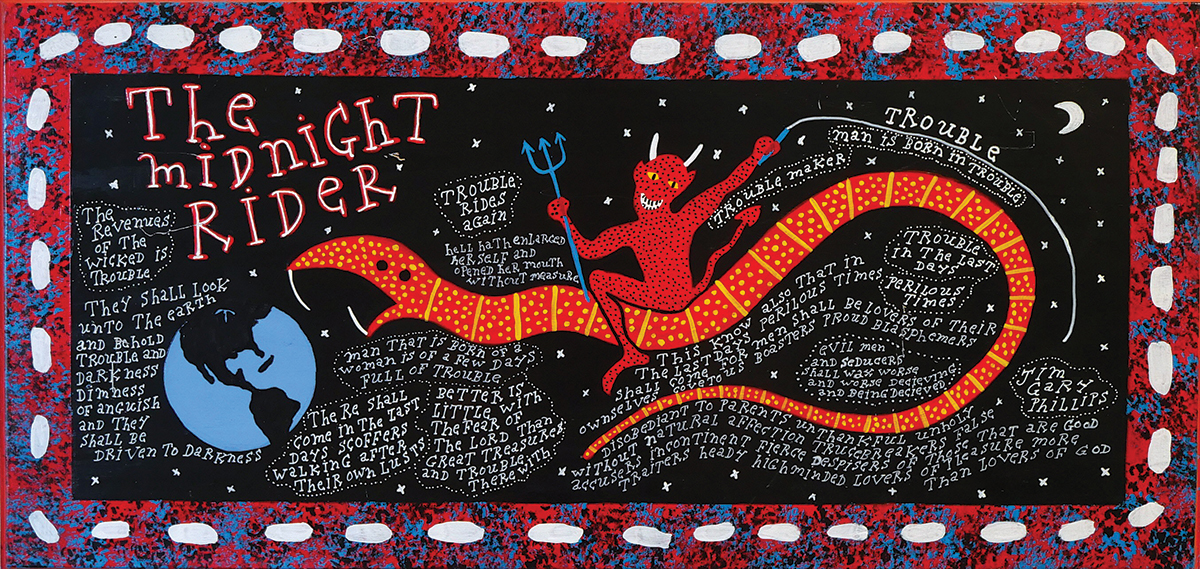 The
miDNiGHT
RiDER
The
Revenues
of The
wicked is
TROUBLE
They shall Look
unto The earth
and Behold
TROUBLE and
DaRkness
Dimness
of anguish
and They
shall Be
DRiven To DaRkness
TROUBLE
RiDes
again
hell hath enlaRged
heRself and
opened heR mouth
without measuRe
man That is BoRn of a
woman is of a Few Days
FuLL oF TROUBLE
TheRe shall
come in The Last
Days scoffeRs
walking afteR
TheiR own Lusts
BeTTeR is
LiTTLe with
The FeaR of
The LoRD Than
GReat TReasuRes
and TROUBLe
TheRewith
TROUBLe makeR
TROUBLE
man is BoRn in TROUBLe
TROUBLe
in The Last
Days
PeRiLous
Times
This know also That in
The Last Days PeRiLous Times
shall come FoR men shall Be LoveRs of TheiR
own selves coveTous BoasTeRs PRouD BLasphemeRs
DisoBeDianT To PaRenTs unThankful unholy
withouT naTuRal affecTion TRuceBReakeRs False
accuseRs inconTinenT FieRce DespiseRs of Those ThaT aRe GooD
TRaiTeRs heaDy highminDeD LoveRs of PLeasuRe moRe
Than LoveRs of GoD
eviL men
anD seDuceRs
shall wax woRse
anD woRse Decieving
anD Being DecieveD
Jim
GaRy
PhiLLips